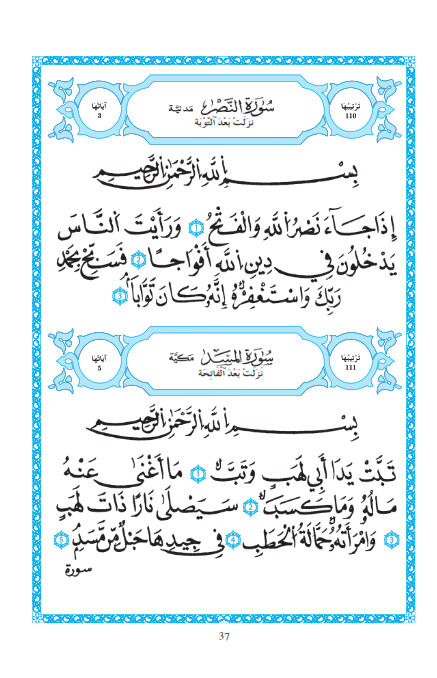 تَرْتِيبُهَا 110 سُورَةِ النَّصْرِ مَدَنِيَّة آيَاتُهَا 3
نَزَلَتْ بَعْدَ التَّوْبَة
بِسْمِ اللَّهِ الرَّحْمَٰنِ الرَّحِيمِ
إِذَا جَاءَ نَصْرُ اللَّهِ وَالْفَتْحُ 1 وَرَأَيْتَ النَّاسَ
يَدْخُلُونَ فِي دِينِ اللَّهِ أَفْوَاجًا 2 فَسَبِّحْ بِحَمْدِ
رَبِّكَ وَاسْتَغْفِرْهُ إِنَّهُ كَانَ تَوَّابًا 3
تَرْتِيبُهَا 111 سُورَةِ المَسَدِ مَكِّيَّة آيَاتُهَا 5
نَزَلَتْ بَعْدَ الْفَاتِحَة
بِسْمِ اللَّهِ الرَّحْمَٰنِ الرَّحِيمِ
تَبَّتْ يَدَا أَبِي لَهَبٍ وَتَبَّ 1 مَا أَغْنَىٰ عَنْهُ
مَالُهُ وَمَا كَسَبَ 2 سَيَصْلَىٰ نَارًا ذَاتَ لَهَبٍ
3 وَامْرَأَتُهُ حَمَّالَةُ الْحَطَبِ 4 فِي جِيدِهَا حَبْلٌ مِّن مَّسَدٍ 5
سورة
37